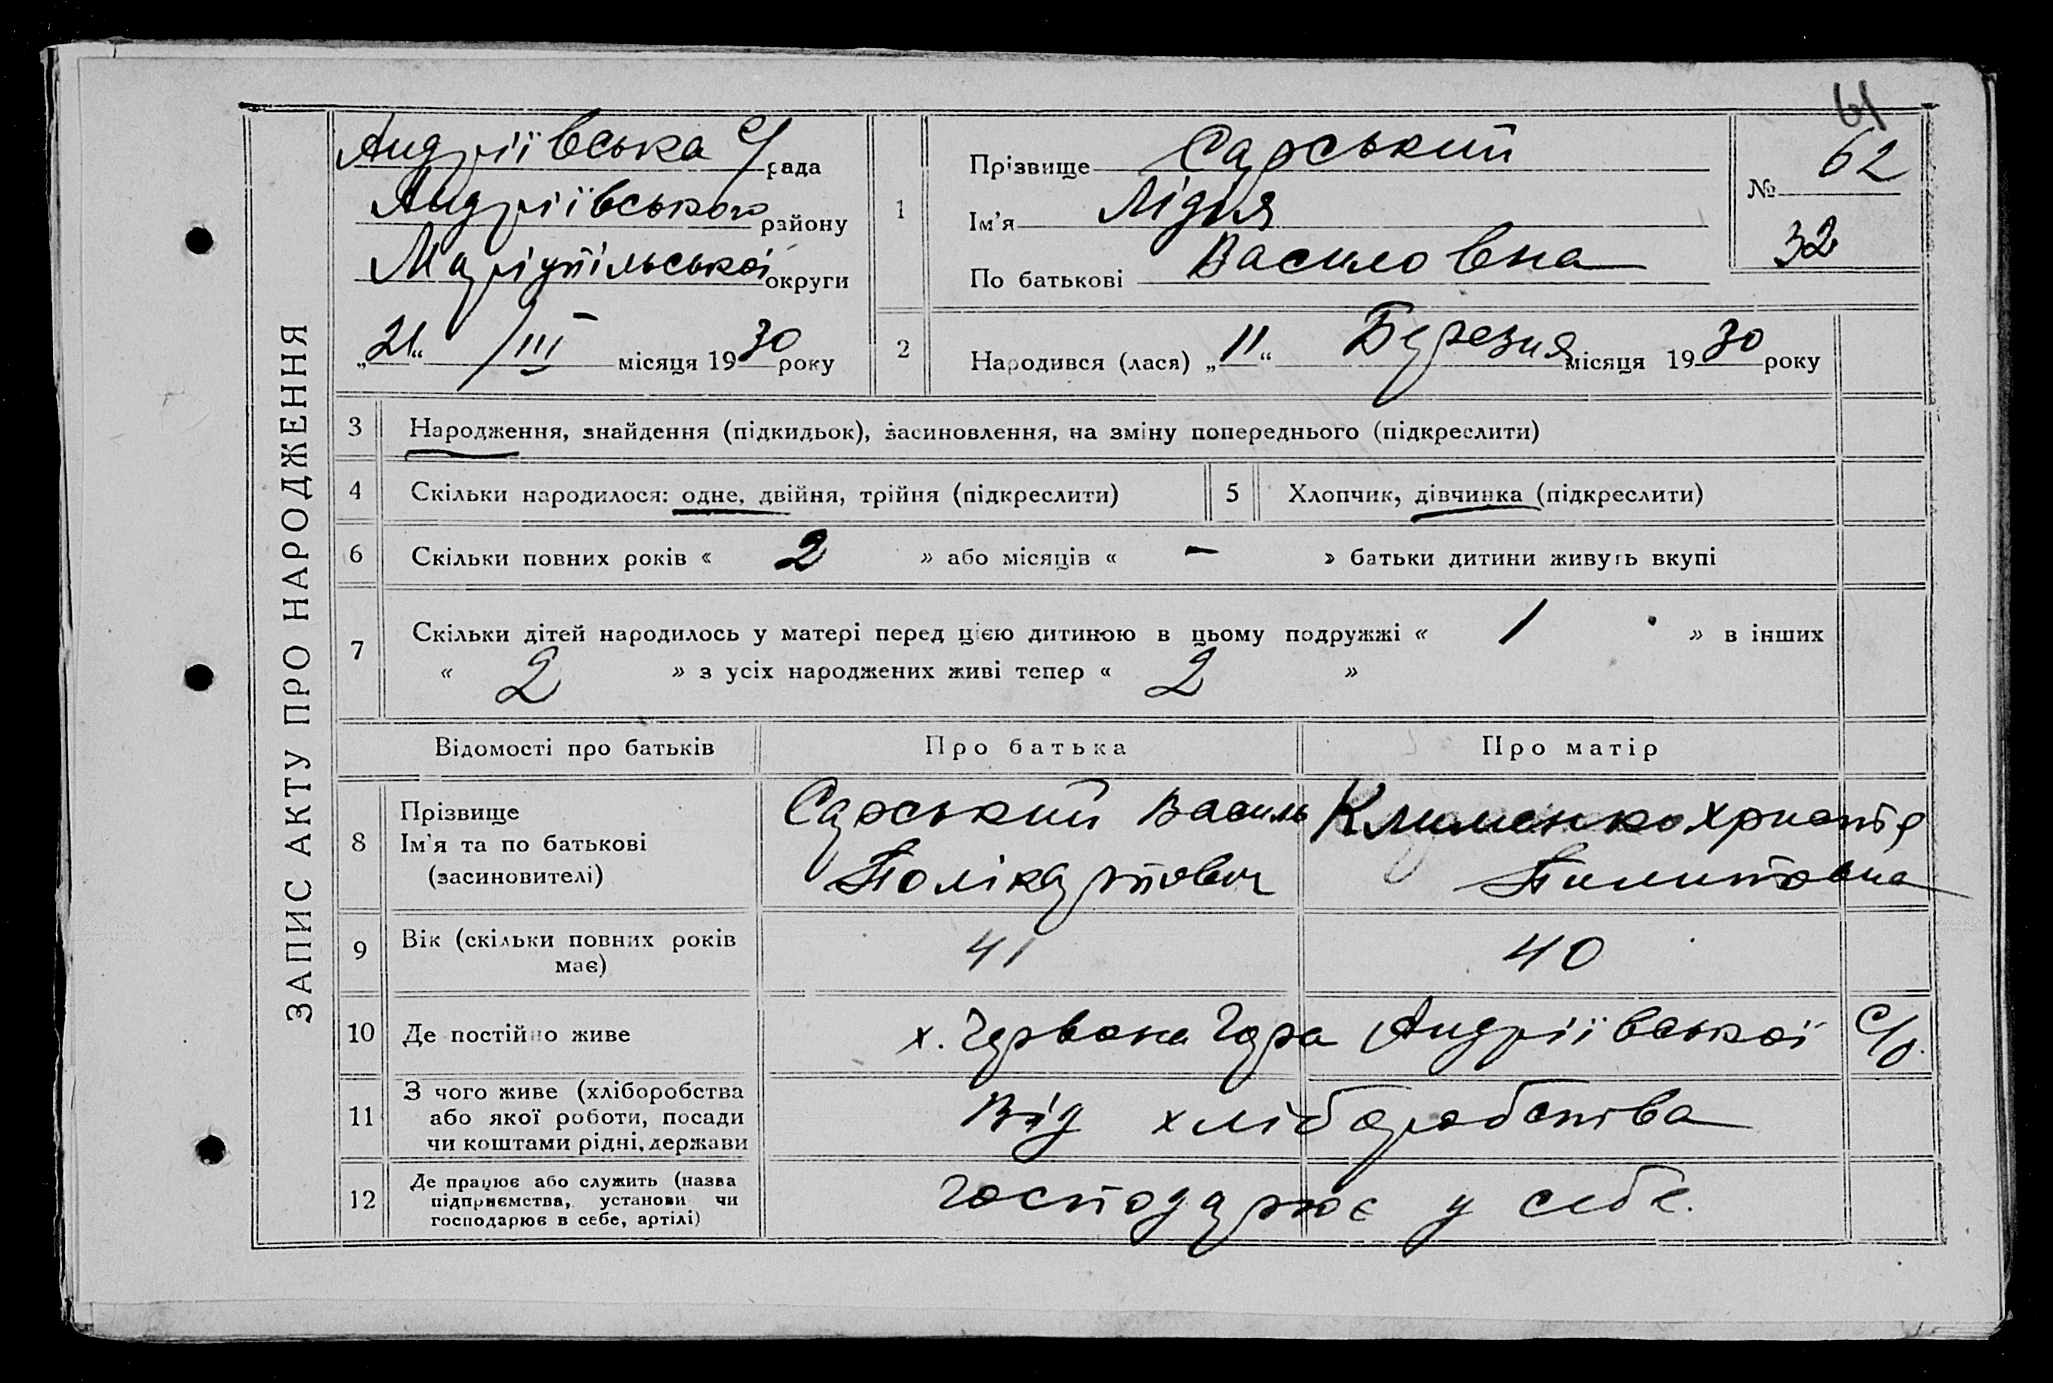 61
Андріївська с/рада
Андріївського району
Маріупільської округи
„21“ /III місяця 1930 року
1
Прізвище Сарський
Ім'я Лідія
По батькові Василовна
№ 62
32
2
Народився (лася) „11“ Березня місяця 1930 року
ЗАПИС АКТУ ПРО НАРОДЖЕННЯ
3 Народження, знайдення (підкидьок), засиновлення, на зміну попереднього (підкреслити)
4 Скільки народилося: одне, двійня, трійня (підкреслити) 5 Хлопчик, дівчинка (підкреслити)
6 Скільки повних років « 2 » або місяців « — » батьки дитини живуть вкупі
7 Скільки дітей народилось у матері перед цією дитиною в цьому подружжі « 1 » в інших
« 2 » з усіх народжених живі тепер « 2 »
Відомості про батьків Про батька Про матір
8 Прізвище
Ім'я та по батькові
(засиновителі)
Сарський Василь
Полікарпович
Клименко Христія
Пилиповна
9 Вік (скільки повних років
має)
41 40
10 Де постійно живе х. Червона Гора Андріївської С/р.
11 З чого живе (хліборобства
або якої роботи, посади
чи коштами рідні, держави
Від хліборобства
12 Де працює або служить (назва
підприємства, установи чи
господарює в себе, артілі)
Господарює у себе.